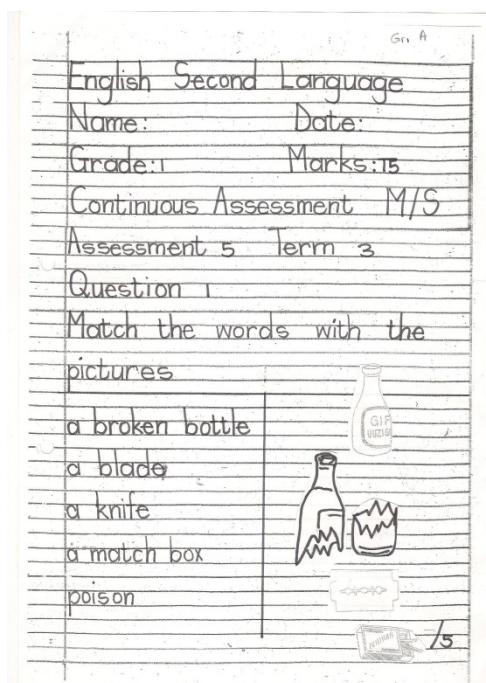 Gr. A
English Second Language
Name: Date:
Grade:1 Marks:15
Continuous Assessment M/S
Assessment 5 Term 3
Question 1
Match the words with the
pictures
a broken bottle
a blade
a knife
a match box
poison
GIF
/5